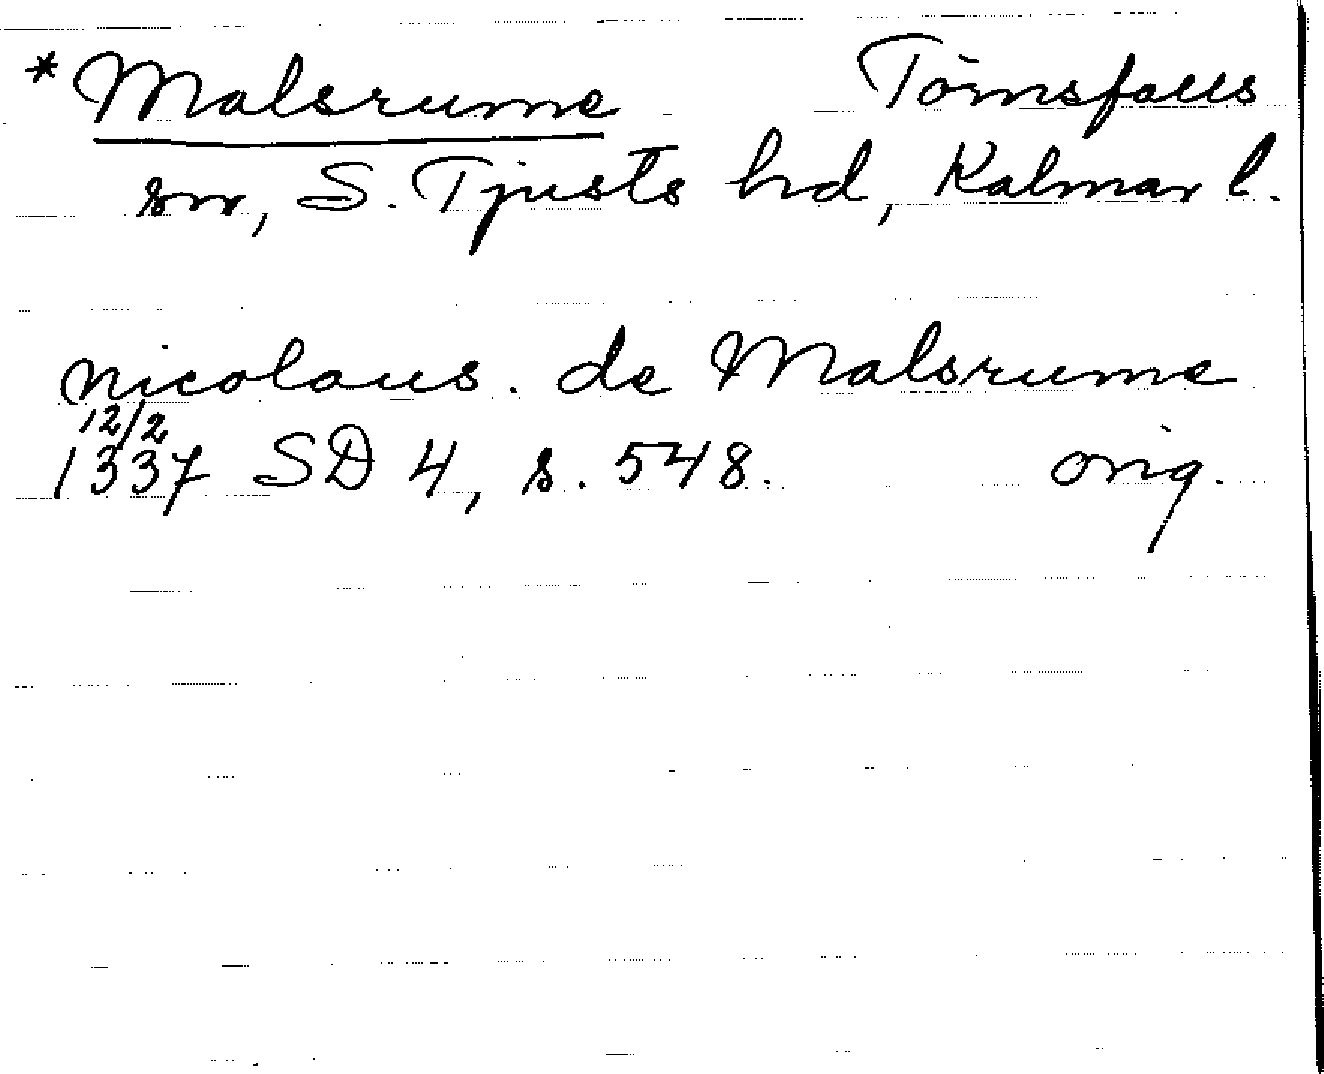 * Malsrume Törnsfalls
sn, S. Tjusts hd, Kalmar l.
nicolaus. de Malsrume
12/2
1337 SD 4, s. 548. orig.